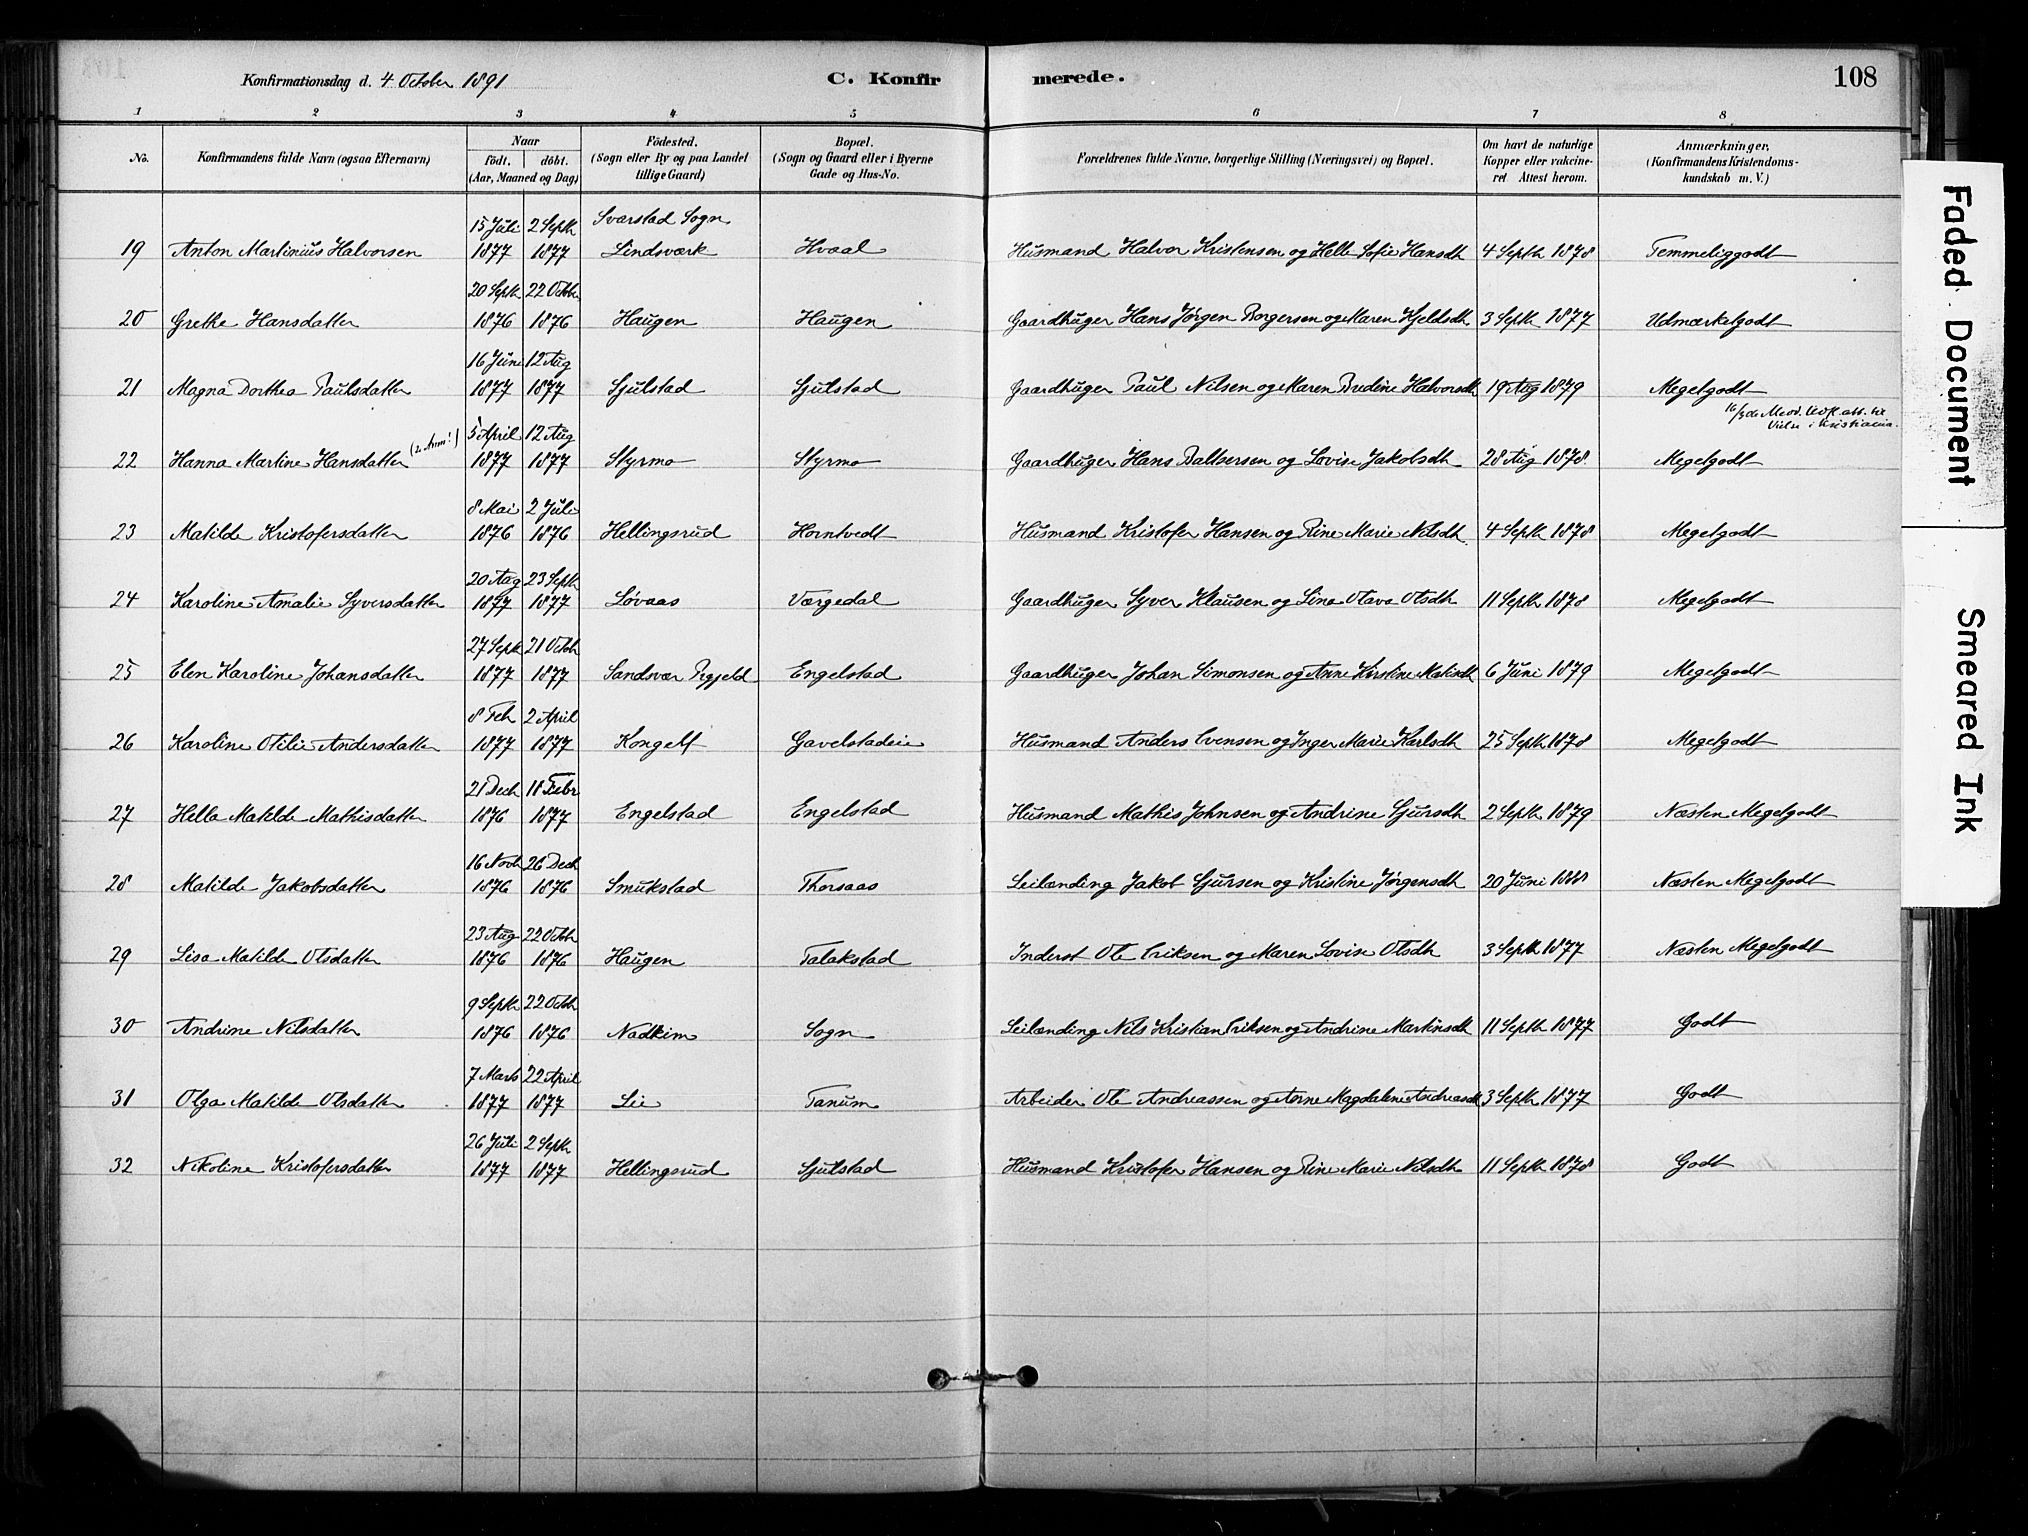 Konfirmationsdag d. 4 October 1891 C. Konfir merede. 108
1 2 3 4 5 6 7 8
No. Konfirmandens fulde Navn (ogsaa Efternavn) Naar födt. döbt. (Aar, Maaned og Dag) Födested. (Sogn eller By og paa Landet tillige Gaard) Bopæl. (Sogn og Gaard eller i Byerne Gade og Hus-No. Forældrenes fulde Navne, borgerlige Stilling (Næringsvei) og Bopæl. Om havt de naturlige Kopper eller vakcineret Attest herom. Anmærkninger, (Konfirmandens Kristendomskundskab m. V.)
15 Juli 2 Septb Svarstad Sogn
19 Anton Martinius Halvorsen 1877 1877 Lindsværk Hvaal Husmand Halvor Kristensen og Helle Sofie Hansdt 4 Septb 1878 Temmeliggodt
20 Septb 22 Octobr
20 Grethe Hansdatter 1876 1876 Haugen Haugen Gaardbruger Hans Jørgen Borgersen og Maren Kjeldsdt 3 Septb 1877 Udmærketgodt
16 Juni 12 Aug
21 Magna Dorthea Paulsdatter 1877 1877 Sjulstad Sjulstad Gaardbruger Paul Nilsen og Maren Bredine Halvorsdt 19 Aug 1879 Megetgodt
5 April 12 Aug
22 Hanna Martine Hansdatter 1877 1877 Styrmo Styrmo Gaardbruger Hans Baltsersen og Lovise Jakobsdt 28 Aug 1878 Megetgodt
8 Mai 2 Juli
23 Matilde Kristofersdatter 1876 1876 Hellingsrud Horntvedt Husmand Kristofer Hansen og Rine Marie Nilsdt 4 Septb 1878 Megetgodt
20 Aug 23 Septb
24 Karoline Amalie Syversdatter 1877 1877 Løvaas Værgedal Gaardbruger Syver Klausen og Lina Olava Olsdt 11 Septb 1878 Megetgodt
27 Septb 21 Octob
25 Elen Karoline Johansdatter 1877 1877 Sandsvær Engelstad Gaardbruger Johan Simonsen og Anne Kirstine 6 Juni 1879 Megetgodt
8 Feb 2 April
26 Karoline Otilie Andersdatter 1877 1877 Kongelf Gavelstadeie Husmand Anders Evensen og Inger Marie Karlsdt 25 Septb 1878 Megetgodt
21 Decb 18 Febr
27 Hella Matilde Mathisdatter 1876 1877 Engelstad Engelstad Husmand Mathis Johnsen og Andrine Sjursdt 2 Septb 1879 Næsten Megetgodt
16 Novb 26 Decb
28 Matilde Jakobsdatter 1876 1876 Smukstad Thorsaas Leilænding Jakob Sjursen og Kristine Jørgensdt 20 Juni 1888 Næsten Megetgodt
23 Aug 22 Octob
29 Lisa Matilde Olsdatter 1876 1876 Haugen Talakstad Inderst Ole Eriksen og Maren Lovise Olsdt 3 Septb 1877 Næsten Megetgodt
9 Septb 22 Octob
30 Andrine Nilsdatter 1876 1876 Nadkim Sogn Leilænding Nils Kristian Eriksen og Andrine Martinsdt 11 Septb 1877 Godt
7 Marts 22 April
31 Olga Matilde Olsdatter 1877 1877 Lie Tanum Arbeider Ole Andreassen og Anne Magdalene Andreasdt 3 Septb 1877 Godt
26 Juli 2 Septb
32 Nikoline Kristofersdatter 1877 1877 Hellingsrud Sjulstad Husmand Kristofer Hansen og Rine Marie Nilsdt 11 Septb 1878 Godt
Faded Document
Smeared Ink